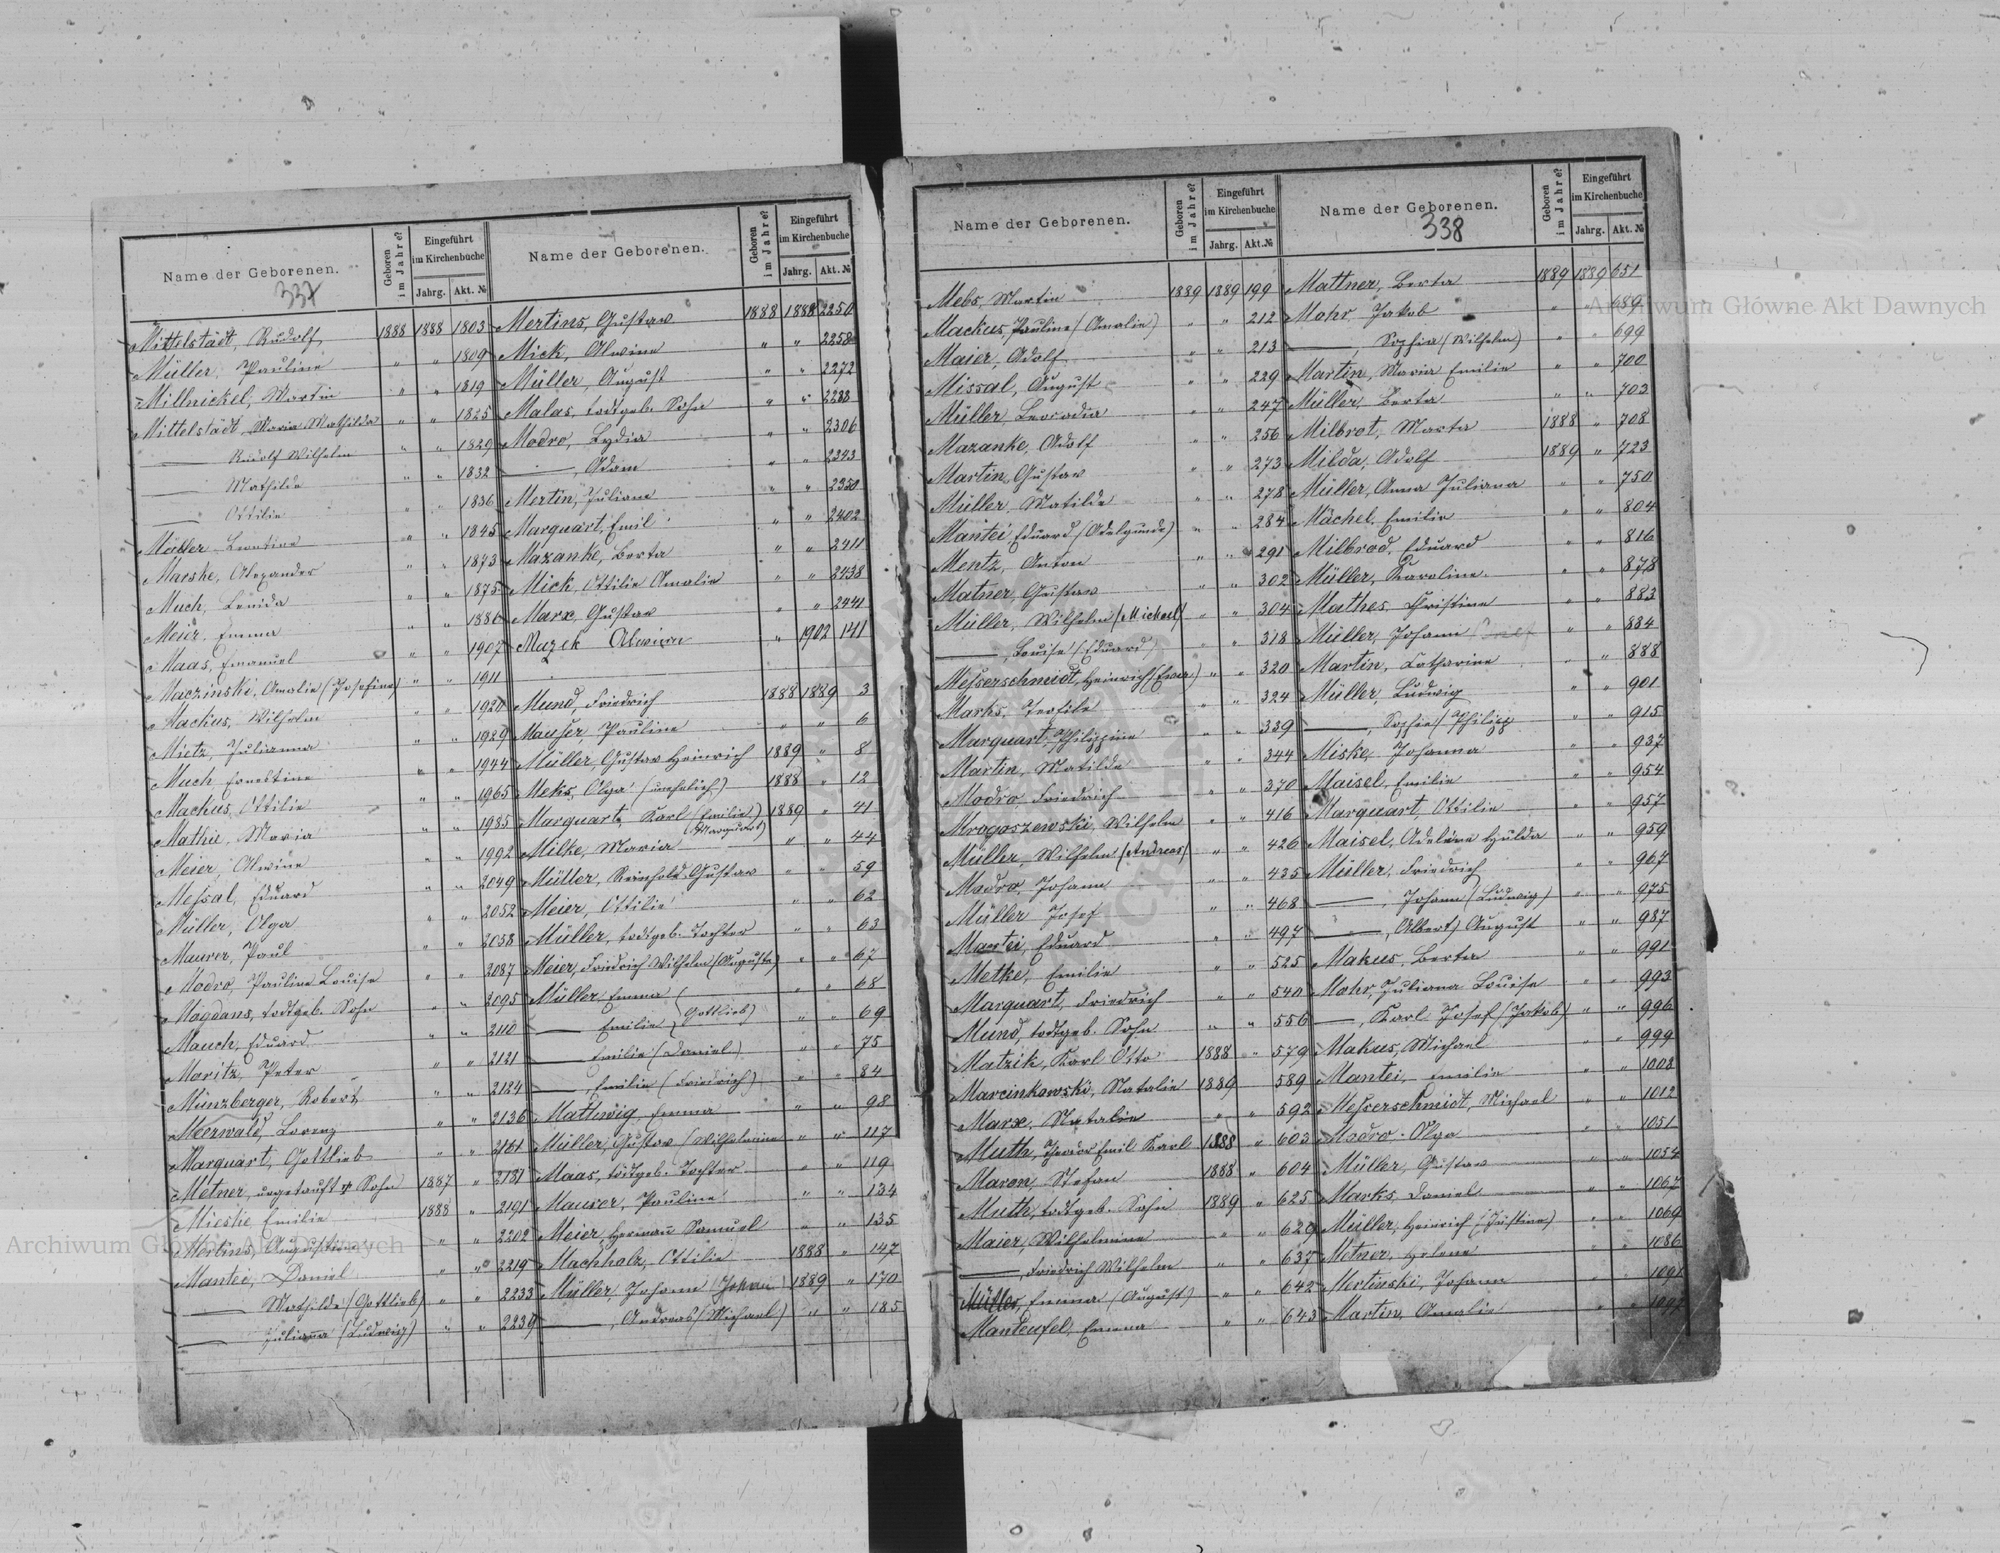 Name der Geborenen.
Geboren im Jahre?
Eingeführt im Kirchenbuche
Jahrg. Akt. №
337
Mittelstädt, Rudolf, 1888 1888 1803
Müller, Pauline " " 1809
Millnickel, Martin " " 1819
Mittelstädt, Maria Mathilda " " 1825
—— Rudolf Wilhelm " " 1829
—— Mathilde " " 1832
—— Ottilie " " 1836
Müller Leontine " " 1845
Maeshe, Alexander " " 1873
Much, Lenida " " 1875
Meier, Emma " " 1886
Maas, Emanuel " " 1907
Maczinski, Amalie (Josefine) " " 1911
Mackus, Wilhelm " "
Mietz, Julianna " " 1939
Much Ernestine " " 1944
Mackus, Ottilie " " 1965
Mathie, Maria " " 1985
Meier, Alwine " " 1992
Messal, Eduard " " 2049
Müller, Olga " " 2052
Maurer, Paul " " 2058
Modro, Pauline Louise " " 2087
Magdans, todtgeb. Sohn " " 2095
Mauch, Eduard " " 2110
Maritz, Peter " " 2121
Münzberger, Robert " " 2124
Merwald, Lorenz " " 2136
Marquart, Gottlieb " " 2161
Metner, ungetauft Sohn 1887 " 2181
Mieske, Emilie 1888 " 2191
Mertins, Augustine " " 2202
Mantei, Daniel " " 2219
—— Mathilde (Gottlieb) " " 2233
—— Julianna (Ludwig) " " 2239
Name der Geborenen.
Geboren im Jahre?
Eingeführt im Kirchenbuche
Jahrg. Akt. №
Mertins, Gustav 1888 1888 2250
Mick, Alwine " " 2258
Müller, August " " 2272
Malas, todtgeb. Sohn " " 2288
Modro, Lydia " " 2306
——, Adam " " 2343
Mertin, Juliane " " 2350
Marquart, Emil " " 2402
Mazanke, Berta " " 2411
Mick, Ottilie Amalie " " 2438
Marx, Gustav " " 2441
Muzek Alwine " 1902 141
Mund, Friedrich 1888 1889 3
Mauser Pauline " " 6
Müller, Gustav Heinrich 1889 " 8
Meks, Olga (unehelich) 1888 " 12
Marquart, Karl (Emilie) 1889 " 41
(Marquart)
Milke, Maria " " 44
Müller, Reinhold Gustav " " 59
Meier, Ottilie " " 62
Müller, todtgeb. Tochter " " 63
Meier, Friedrich Wilhelm (Auguste) " " 67
Müller Emma " " 68
—— Emilie (Gottlieb) " " 69
—— Emilie (Daniel) " " 75
——, Emilie (Friedrich) " " 84
Mathwig Emma " " 98
Müller, Gustav (Wilhelmine " " 117
Maas, todtgeb. Tochter " " 119
Maurer, Pauline " " 134
Meier, Herman Samuel " " 135
Machholz, Ottilie 1888 " 147
Müller, Johann (Johann) 1889 " 170
——, Andreas (Michael) " " 185
Name der Geborenen.
Geboren im Jahre?
Eingeführt im Kirchenbuche
Jahrg. Akt. №
Mebs, Martin 1889 1889 199
Mackus, Pauline (Amalie) " " 212
Maier, Adolf " " 213
Missal, August " " 229
Müller, Leocadia " " 247
Mazanke, Adolf " " 256
Martin, Gustav " " 273
Müller, Matilde " " 278
Mantei, Eduard (Adelgunde) " " 284
Mentz, Anton " " 291
Matner, Gustav " " 302
Müller, Wilhelm (Mickael) " " 304
——, Louise (Eduard) " " 318
Messerschmidt, Heinrich (Ewa) " " 320
Marks, Teofile " " 324
Marquart, Philippine " " 339
Martin, Matilde " " 344
Modro Friedrich " " 370
Mrogoszewski, Wilhelm " " 416
Müller, Wilhelm (Andreas) " " 426
Modro, Johann " " 435
Müller Josef " " 468
Mantei, Eduard " " 497
Metke, Emilie " " 525
Marquart, Friedrich " " 540
Mund, todtgeb. Sohn " " 556
Matzik, Karl Otto 1888 " 579
Marcinkowski, Natalie 1889 589
Marx, Natalie " " 592
Muth, Theodor Emil Karl 1888 " 603
Maron, Stefan 1888 " 604
Muth, todtgeb. Sohn 1889 " 625
Maier, Wilhelmine " " 629
——, Friedrich Wilhelm " " 637
Müller, Emma (August) " " 642
Manteufel, Emma " " 643
Name der Geborenen.
338
Geboren im Jahre?
Eingeführt im Kirchenbuche
Jahrg. Akt. №
Mattner, Berta 1889 1889 651
Mohr, Jakob " " 689
——, Sophia (Wilhelm) " " 699
Martin, Maria Emilie " " 700
Müller, Berta " " 703
Milbrot, Marta 1888 " 708
Milda, Adolf 1889 " 723
Müller, Anna Juliana " " 750
Mächel, Emilie " " 804
Milbrod, Eduard " " 816
Müller, Karoline " " 878
Mathes, Christine " " 883
Müller, Johann " " 884
Martin, Catharine " " 888
Müller, Ludwig " " 901
——, Sophie (Philipp " " 915
Miske, Johanna " " 937
Maisel, Emilie " " 954
Marquart, Ottilie " " 957
Maisel, Adeline Hulda " " 959
Müller, Friedrich " " 967
——, Johann (Ludwig) " " 975
——, Albert) August " " 987
Makus, Berta " " 991
Mohr, Juliana Louise " " 993
——, Karl Josef (Jakob) " " 996
Makus, Michael " " 999
Mantei, Emilie " " 1008
Messerschmidt, Michael " " 1012
Modro Olga " " 1051
Müller, Gustav " " 1054
Marks, Daniel " " 1067
Müller, Heinrich (Justine) " " 1069
Metner, Helene " " 1086
Mertinski, Johann " " 1091
Martin, Amalie " " 1097
Archiwum Główne Akt Dawnych
Archiwum Główne Akt Dawnych